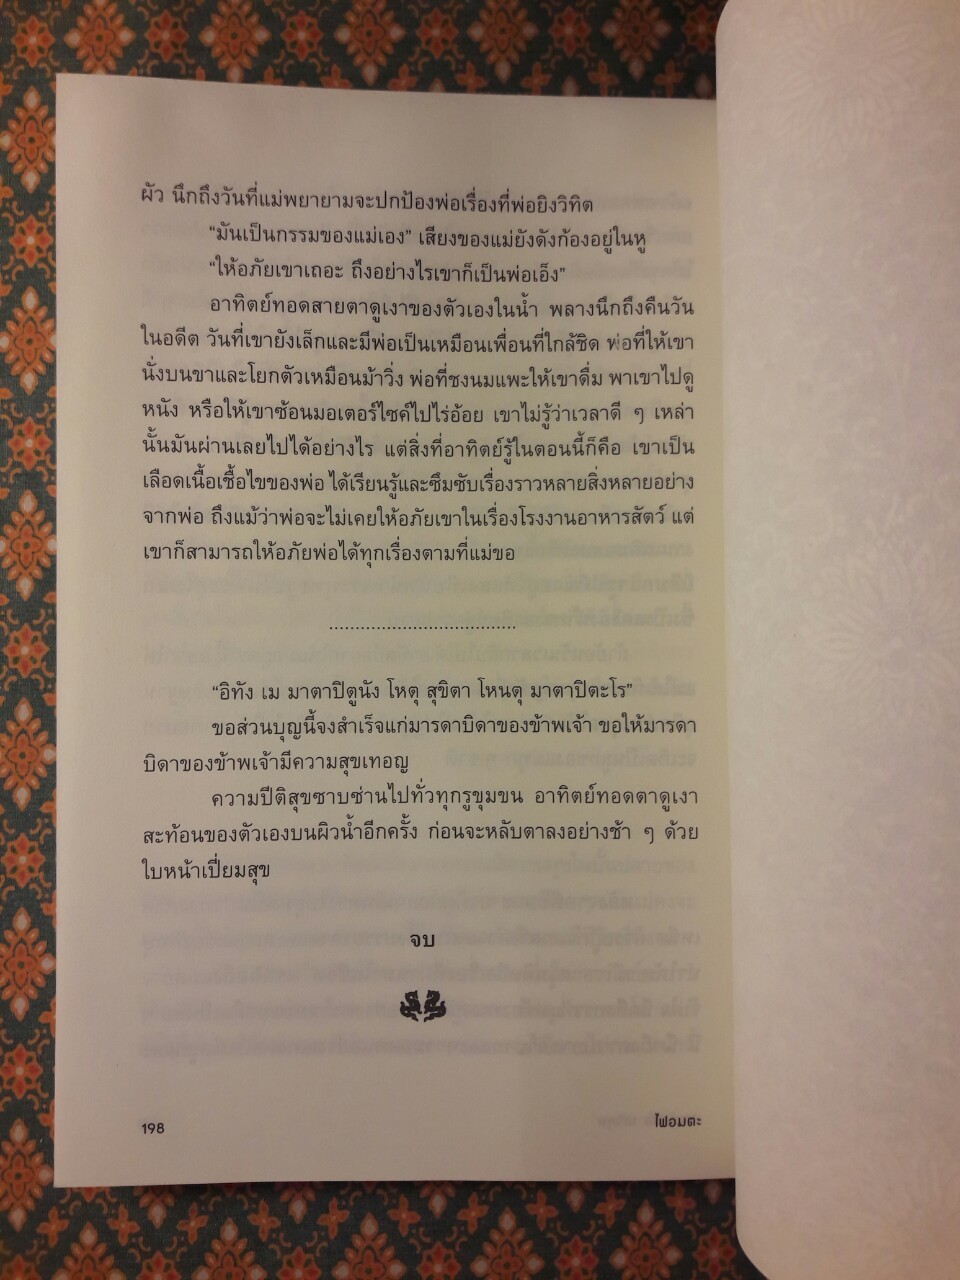 ผัว นึกถึงวันที่แม่พยายามจะปกป้องพ่อเรื่องที่พ่อยิงวิทิต
“มันเป็นกรรมของแม่เอง” เสียงของแม่ยังดังก้องอยู่ในหู
“ให้อภัยเขาเถอะ ถึงอย่างไรเขาก็เป็นพ่อเอ็ง”
อาทิตย์ทอดสายตาดูเงาของตัวเองในน้ำ พลางนึกถึงคืนวัน
ในอดีต วันที่เขายังเล็กและมีพ่อเป็นเหมือนเพื่อนที่ใกล้ชิด พ่อที่ให้เขา
นั่งบนขาและโยกตัวเหมือนม้าวิ่ง พ่อที่ชงนมแพะให้เขาดื่ม พาเขาไปดู
หนัง หรือให้เขาซ้อนมอเตอร์ไซค์ไปไร่อ้อย เขาไม่รู้ว่าเวลาดี ๆ เหล่า
นั้นมันผ่านเลยไปได้อย่างไร แต่สิ่งที่อาทิตย์รู้ในตอนนี้ก็คือ เขาเป็น
เลือดเนื้อเชื้อไขของพ่อ ได้เรียนรู้และซึมซับเรื่องราวหลายสิ่งหลายอย่าง
จากพ่อ ถึงแม้ว่าพ่อจะไม่เคยให้อภัยเขาในเรื่องโรงงานอาหารสัตว์ แต่
เขาก็สามารถให้อภัยพ่อได้ทุกเรื่องตามที่แม่ขอ
....................................
“อิทัง เม มาตาปิตูนัง โหตุ สุขิตา โหนตุ มาตาปิตะโร”
ขอส่วนบุญนี้จงสำเร็จแก่มารดาบิดาของข้าพเจ้า ขอให้มารดา
บิดาของข้าพเจ้ามีความสุขเทอญ
ความปีติสุขซาบซ่านไปทั่วทุกรูขุมขน อาทิตย์ทอดตาดูเงา
สะท้อนของตัวเองบนผิวน้ำอีกครั้ง ก่อนจะหลับตาลงอย่างช้า ๆ ด้วย
ใบหน้าเปี่ยมสุข
จบ
198
ไฟอมตะ